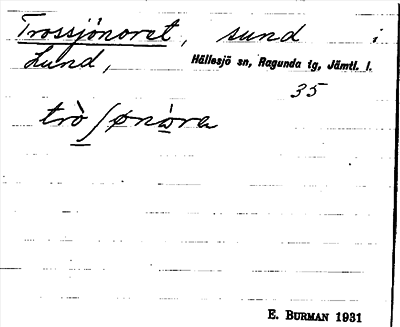 Trossjönoret, sund i
Lund, Hällesjö sn, Ragunda tg, Jämtl. l.
35
trò ʃønòra
E. BURMAN 1931